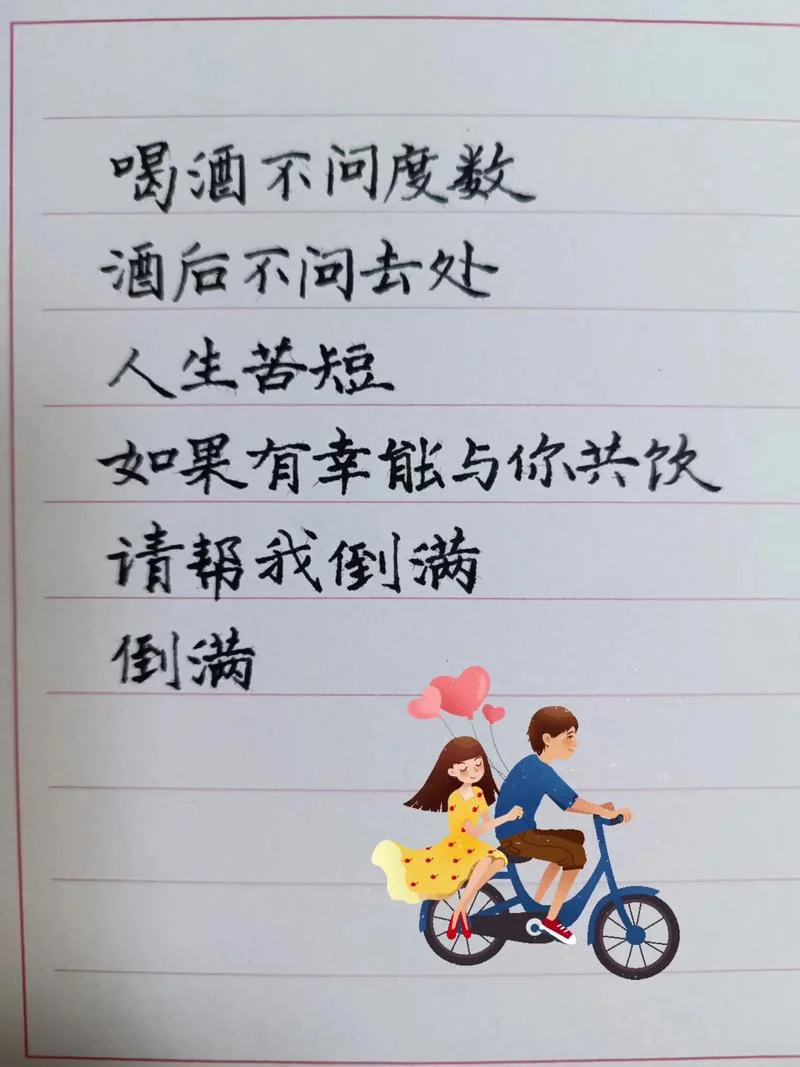 喝酒不问度数
酒后不问去处
人生苦短
如果有幸能与你共饮
请帮我倒满
倒满